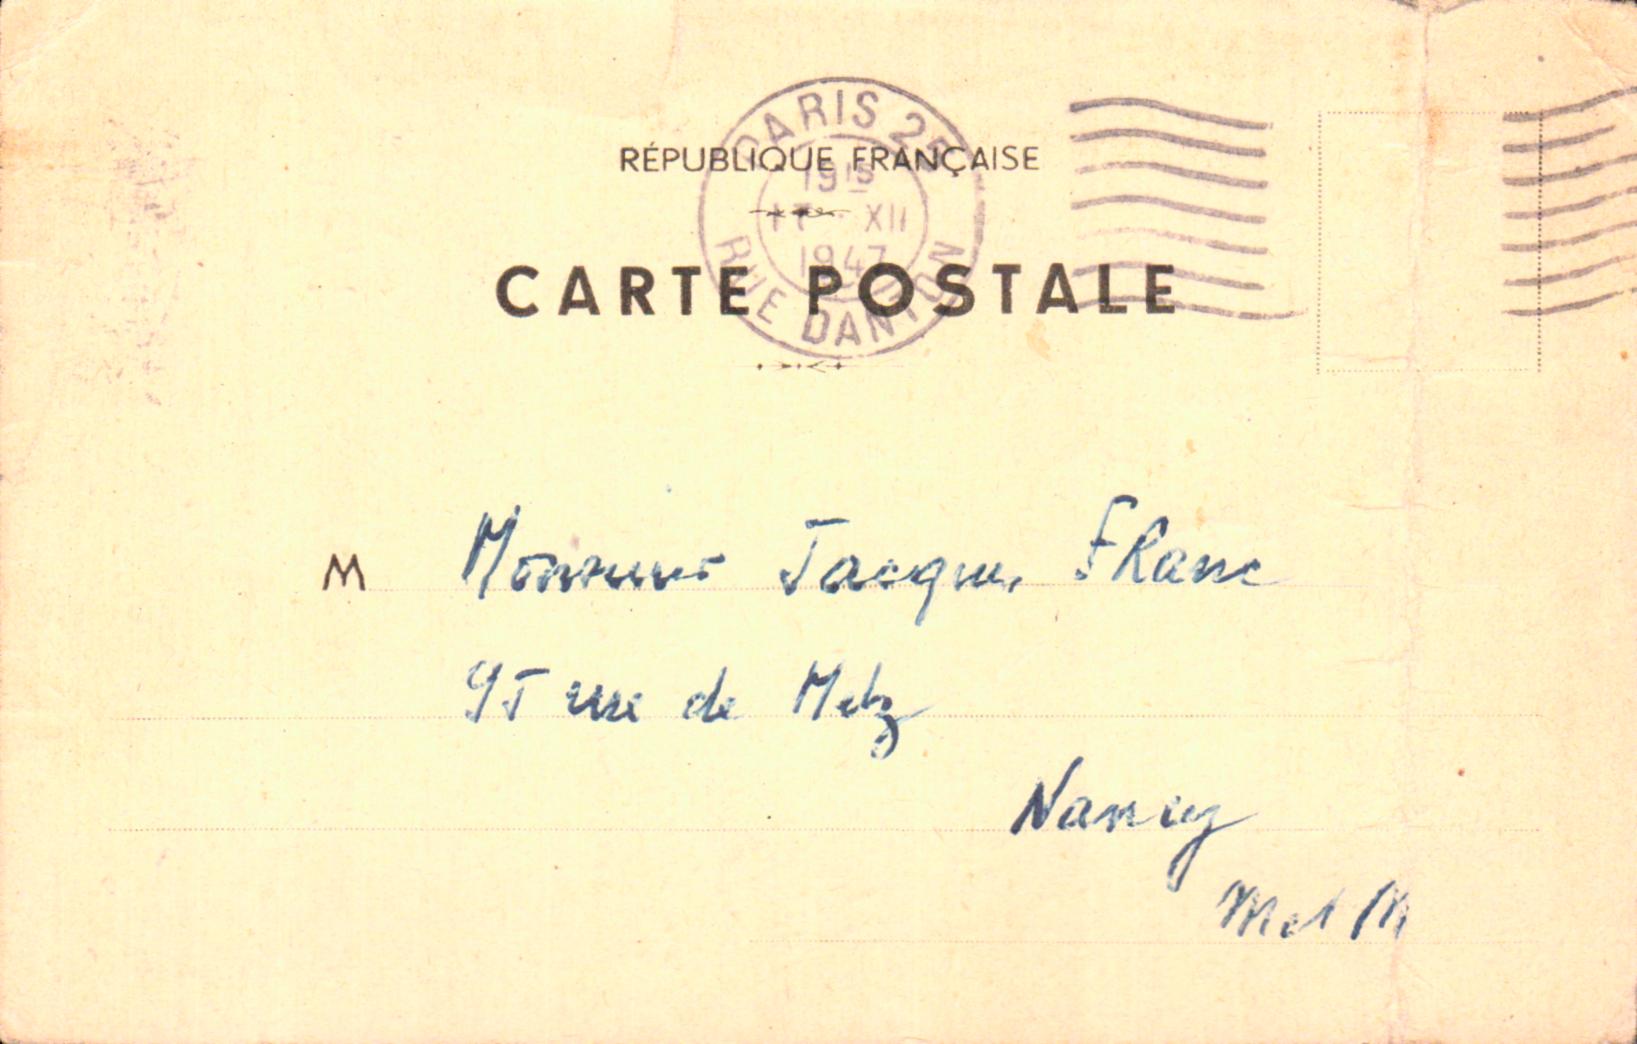 PARIS 25
RÉPUBLIQUE FRANÇAISE
19 15
17 XII
1947
RUE DANTON
CARTE POSTALE
M Monsieur Jacques Franc
95 rue de Metz
Nancy
M et M